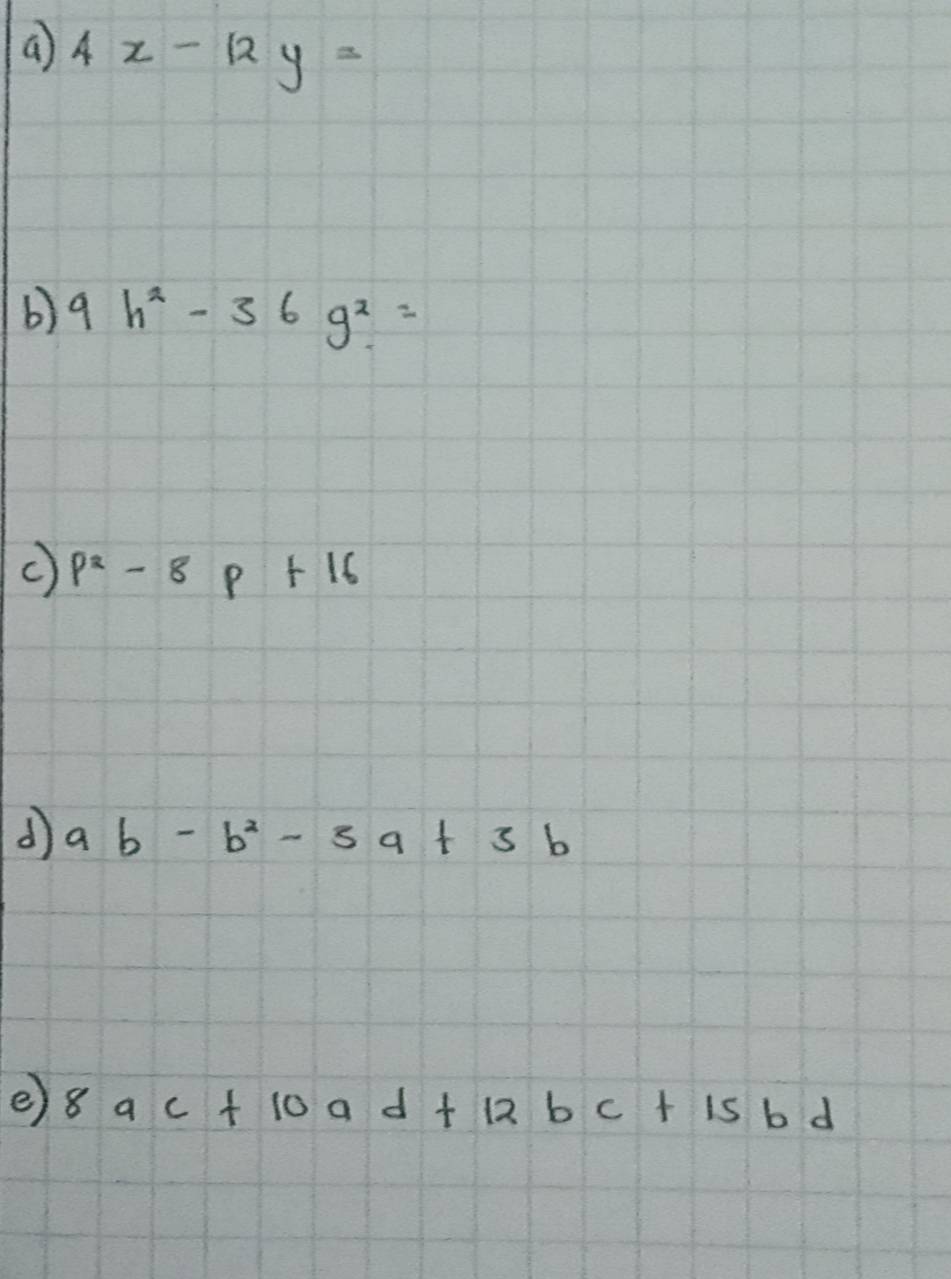 a) 4 x - 12 y =
b) 9 h² - 36 g² =
c) p² - 8 p + 16
d) a b - b² - 3 a + 3 b
e) 8 a c + 10 a d + 12 b c + 15 b d